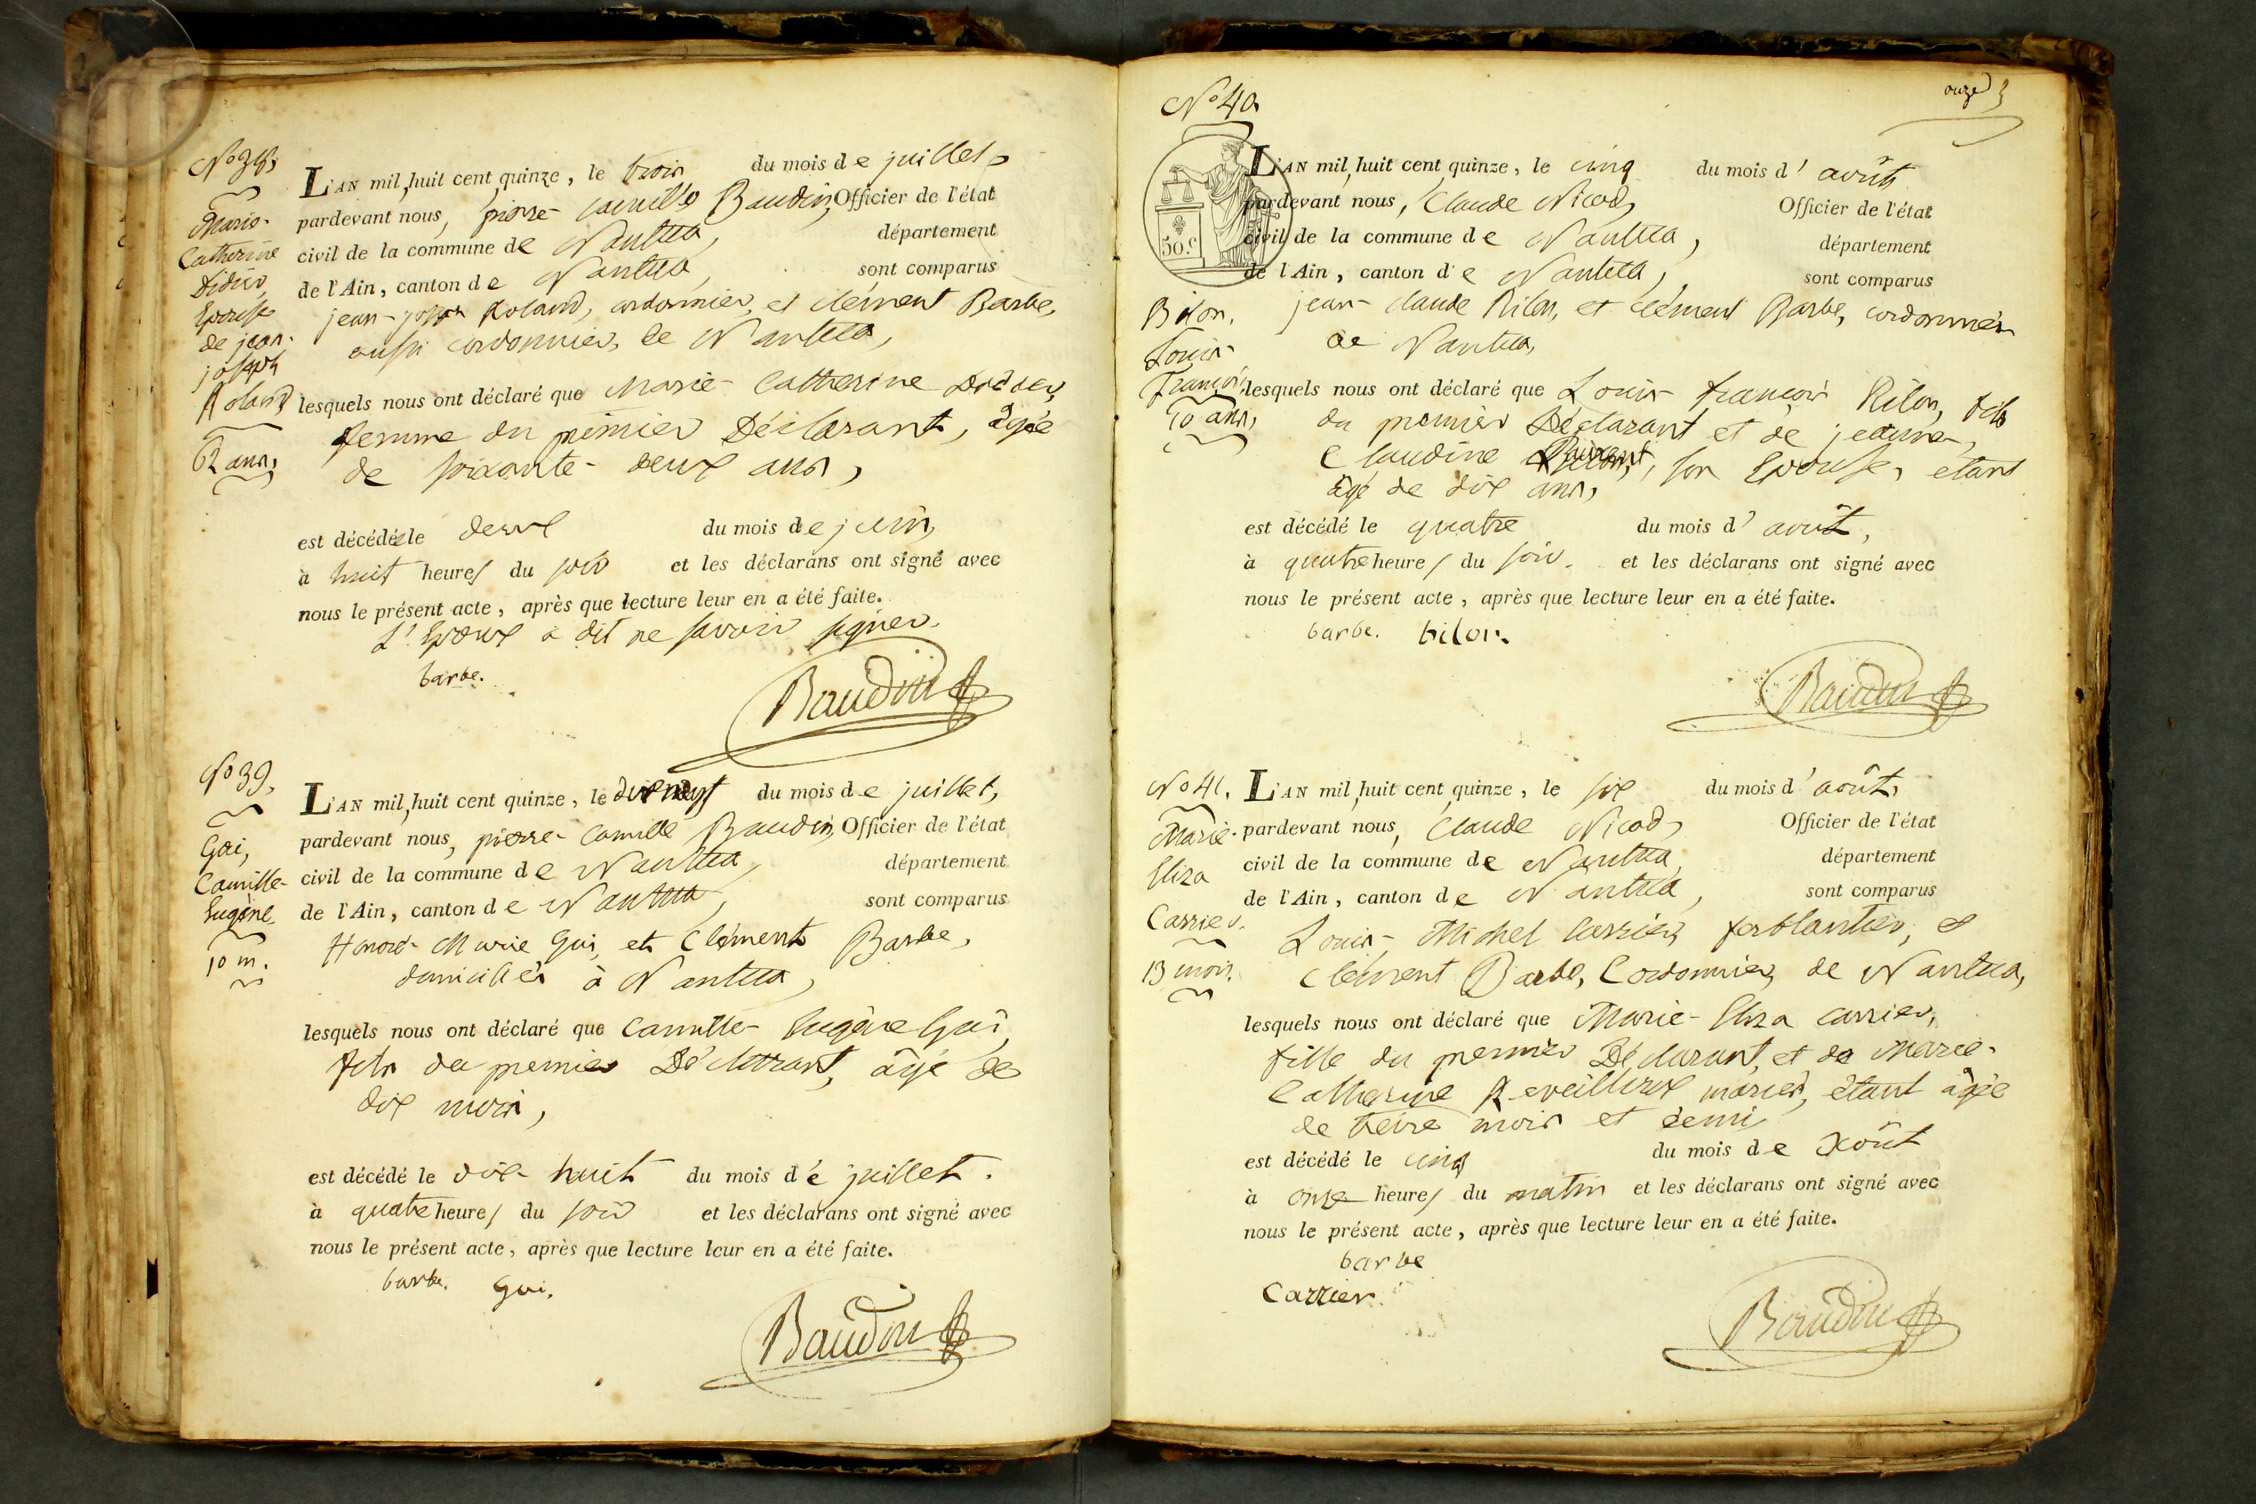 No 38,
Marie-
Catherine
Didier,
Epouse
de jean-
joseph
Roland
62 ans,
L'AN mil huit cent quinze, le trois du mois de juillet,
pardevant nous, pierre-camille Baudin, Officier de l'état
civil de la commune de Nantua, département
de l'Ain, canton de Nantua, sont comparus
jean-joseph Roland, cordonnier, et clément Barbe,
aussi cordonnier, de Nantua,
lesquels nous ont déclaré que Marie-Catherine Didier,
femme du premier Déclarant, agée
de soixante-deux ans,
est décédée le deux du mois de juin,
à huit heures du soir et les déclarans ont signé avec
nous le présent acte, après que lecture leur en a été faite.
L'Epoux a dit ne savoir signer.
barbe.
Baudin
No 39,
Gui,
Camille-
Eugène
10 m.
L'AN mil huit cent quinze, le dix neuf du mois de juillet,
pardevant nous, pierre-Camille Baudin, Officier de l'état
civil de la commune de Nantua, département
de l'Ain, canton de Nantua, sont comparus
Honoré-Marie Gui, et Clément Barbe,
domiciliés à Nantua,
lesquels nous ont déclaré que Camille-Eugène Gui,
fils du premier Déclarant, âgé de
dix mois,
est décédé le dix-huit du mois de juillet.
à quatre heures du soir et les déclarans ont signé avec
nous le présent acte, après que lecture leur en a été faite.
barbe. Gui.
Baudin
onze
No 40
50 c.
Bilon.
Louis-
François
10 ans,
L'AN mil huit cent quinze, le cinq du mois d'août
pardevant nous, Claude Nicod, Officier de l'état
civil de la commune de Nantua, département
de l'Ain, canton de Nantua, sont comparus
jean-claude Bilon, et clément Barbe, cordonnier
de Nantua,
lesquels nous ont déclaré que Louis-françois Bilon, fils
du premier Déclarant et de jeanne-
Claudine son Epouse, étant
âgé de dix ans,
est décédé le quatre du mois d'août,
à quatre heures du soir. et les déclarans ont signé avec
nous le présent acte, après que lecture leur en a été faite.
barbe. bilon.
Baudin
No 41.
Marie-
Eliza
Carrier.
13 mois.
L'AN mil huit cent quinze, le six du mois d'août,
pardevant nous, Claude Nicod, Officier de l'état
civil de la commune de Nantua, département
de l'Ain, canton de Nantua, sont comparus
Louis-Michel Carrier, ferblantier, &
Clément Barbe, Cordonnier, de Nantua,
lesquels nous ont déclaré que Marie-Eliza carrier,
fille du premier Déclarant, et de Marie-
Catherine Reveilloux mariés, étant âgée
de treize mois et demi
est décédé le cinq du mois de Août
à onze heures du matin et les déclarans ont signé avec
nous le présent acte, après que lecture leur en a été faite.
barbe
Carrier.
Baudin